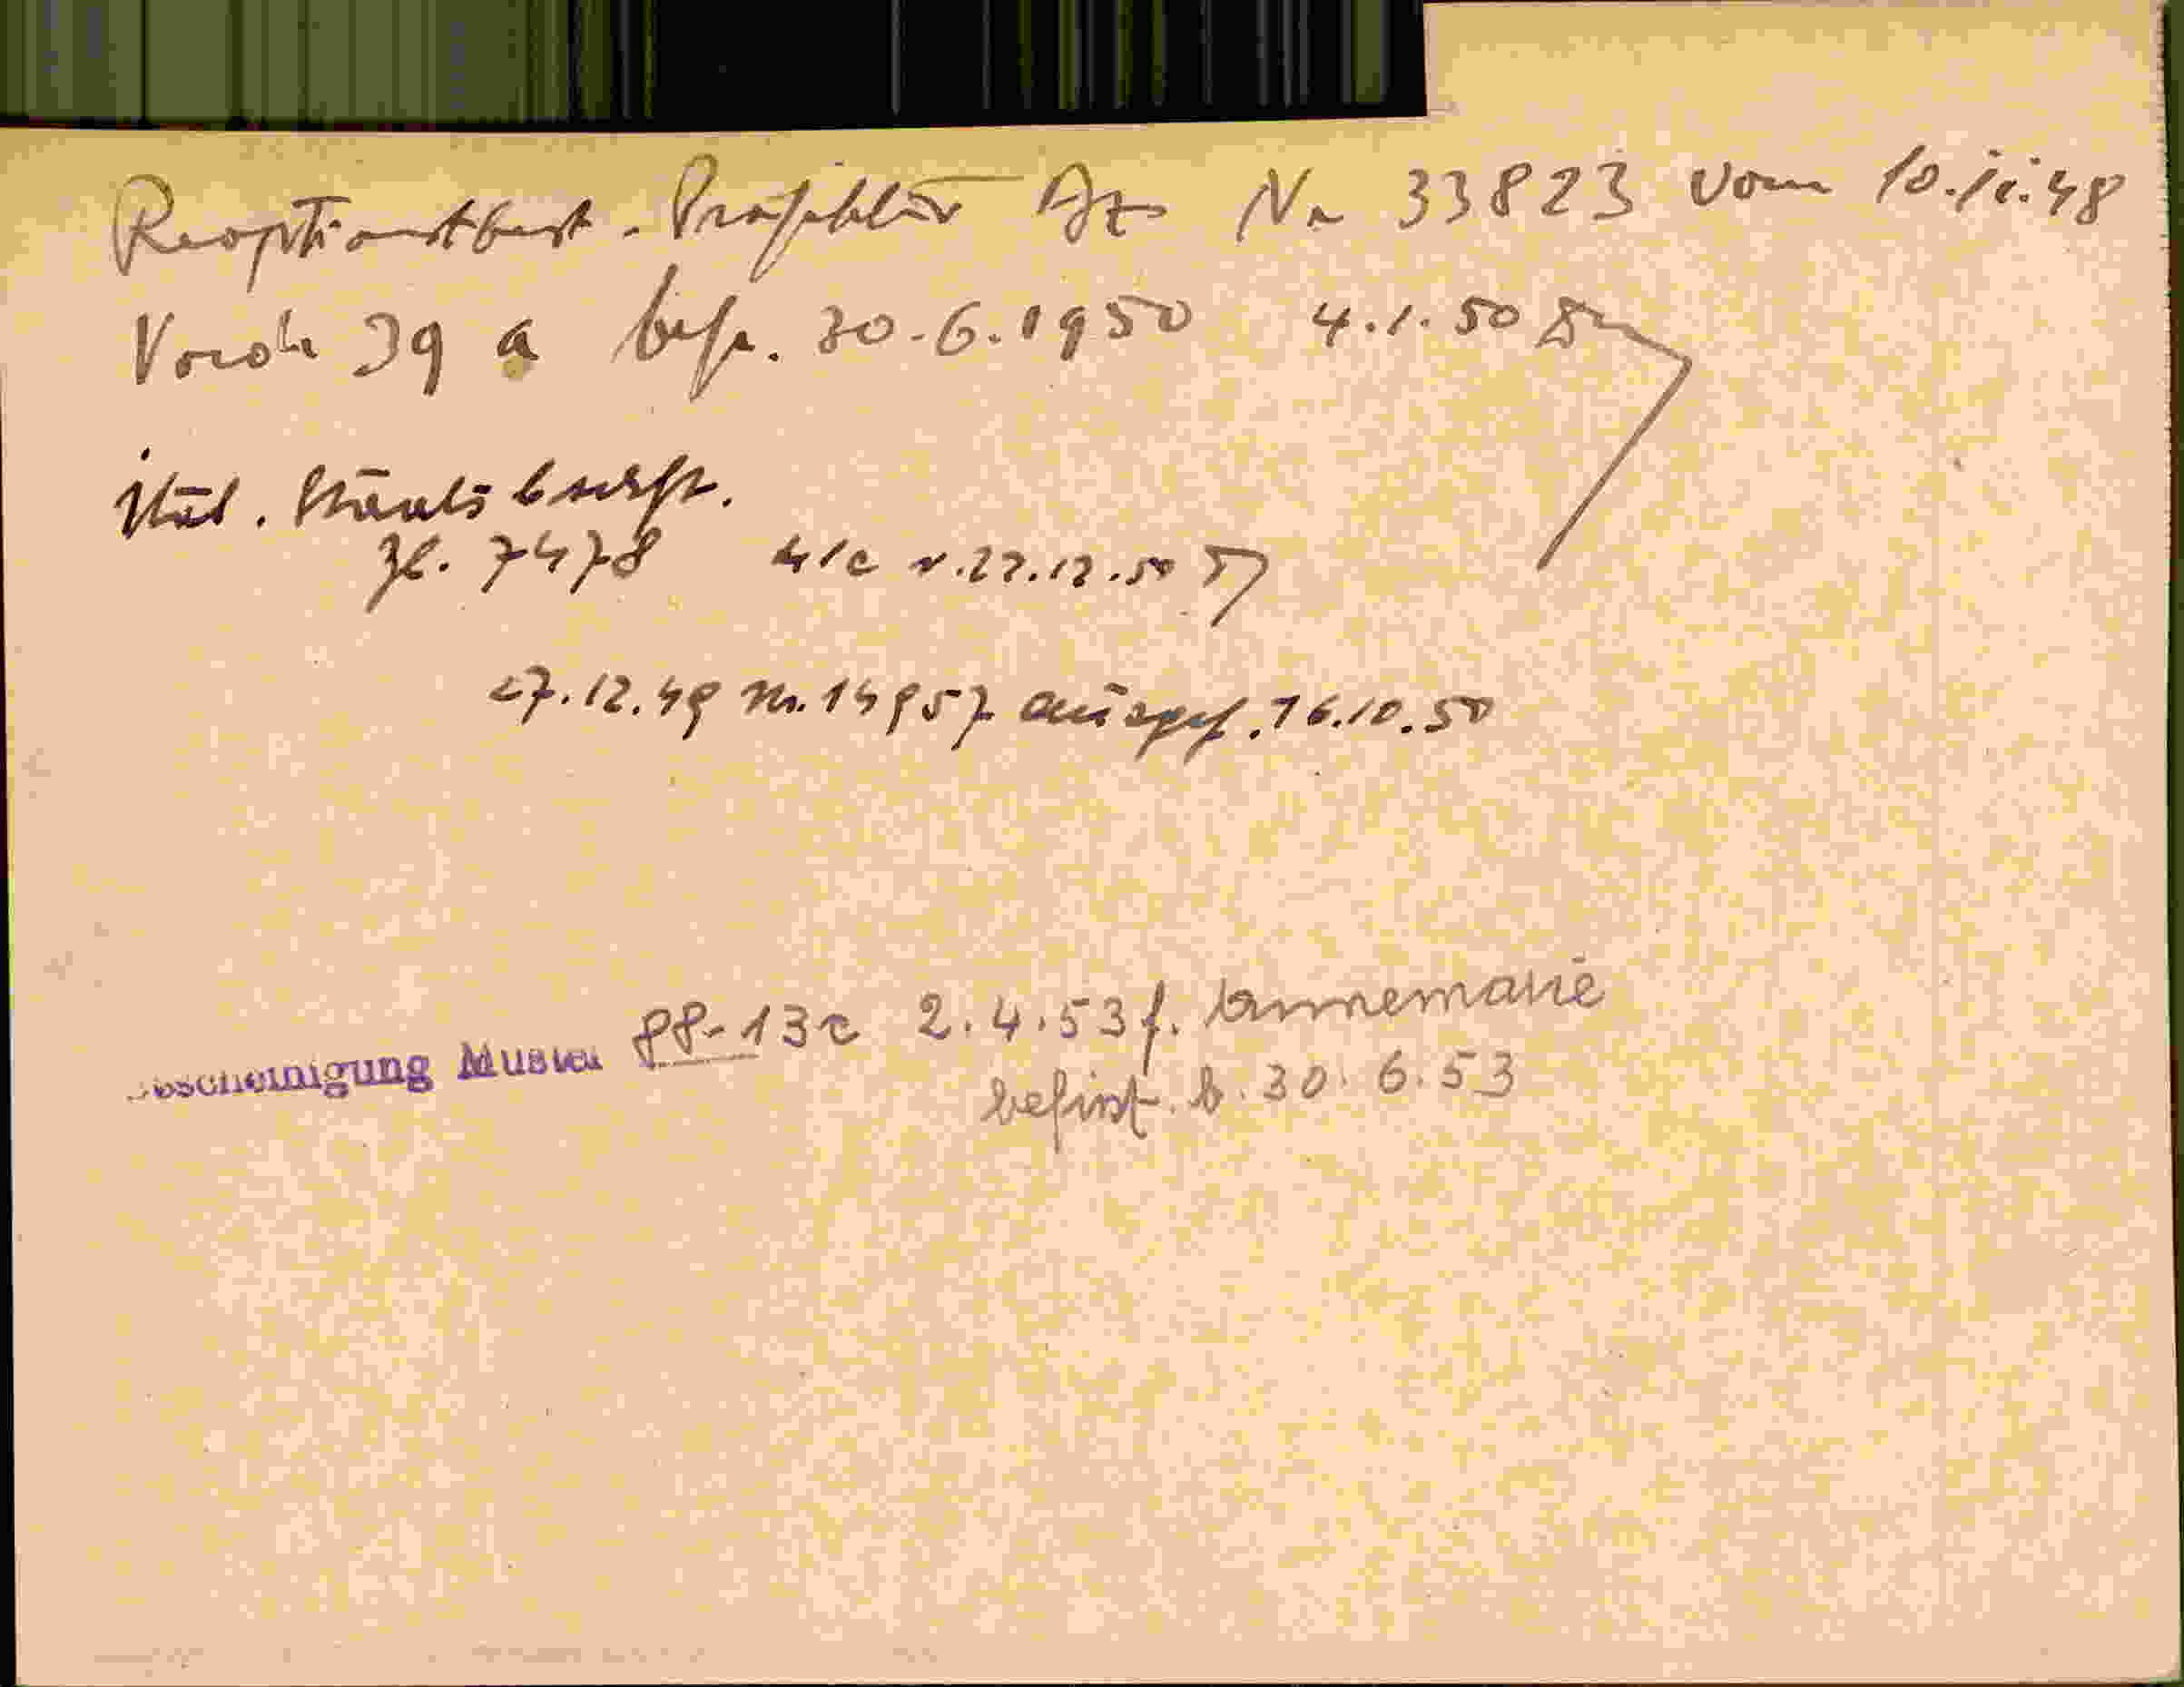 Reoptionsbest. Präfektur Bz Nr 33823 vom 10.11.48
Vordr 39 a befr. 30.6.1950 4.1.50
ital. Staatsbürgft.
Zl. 7478 4/c v. 22.12.50
27.12.49 Nr. 14957 ausgef. 16.10.50
bscheinigung Muster 88-13c 2.4.53 f. Annemarie
befrist. b. 30. 6. 53